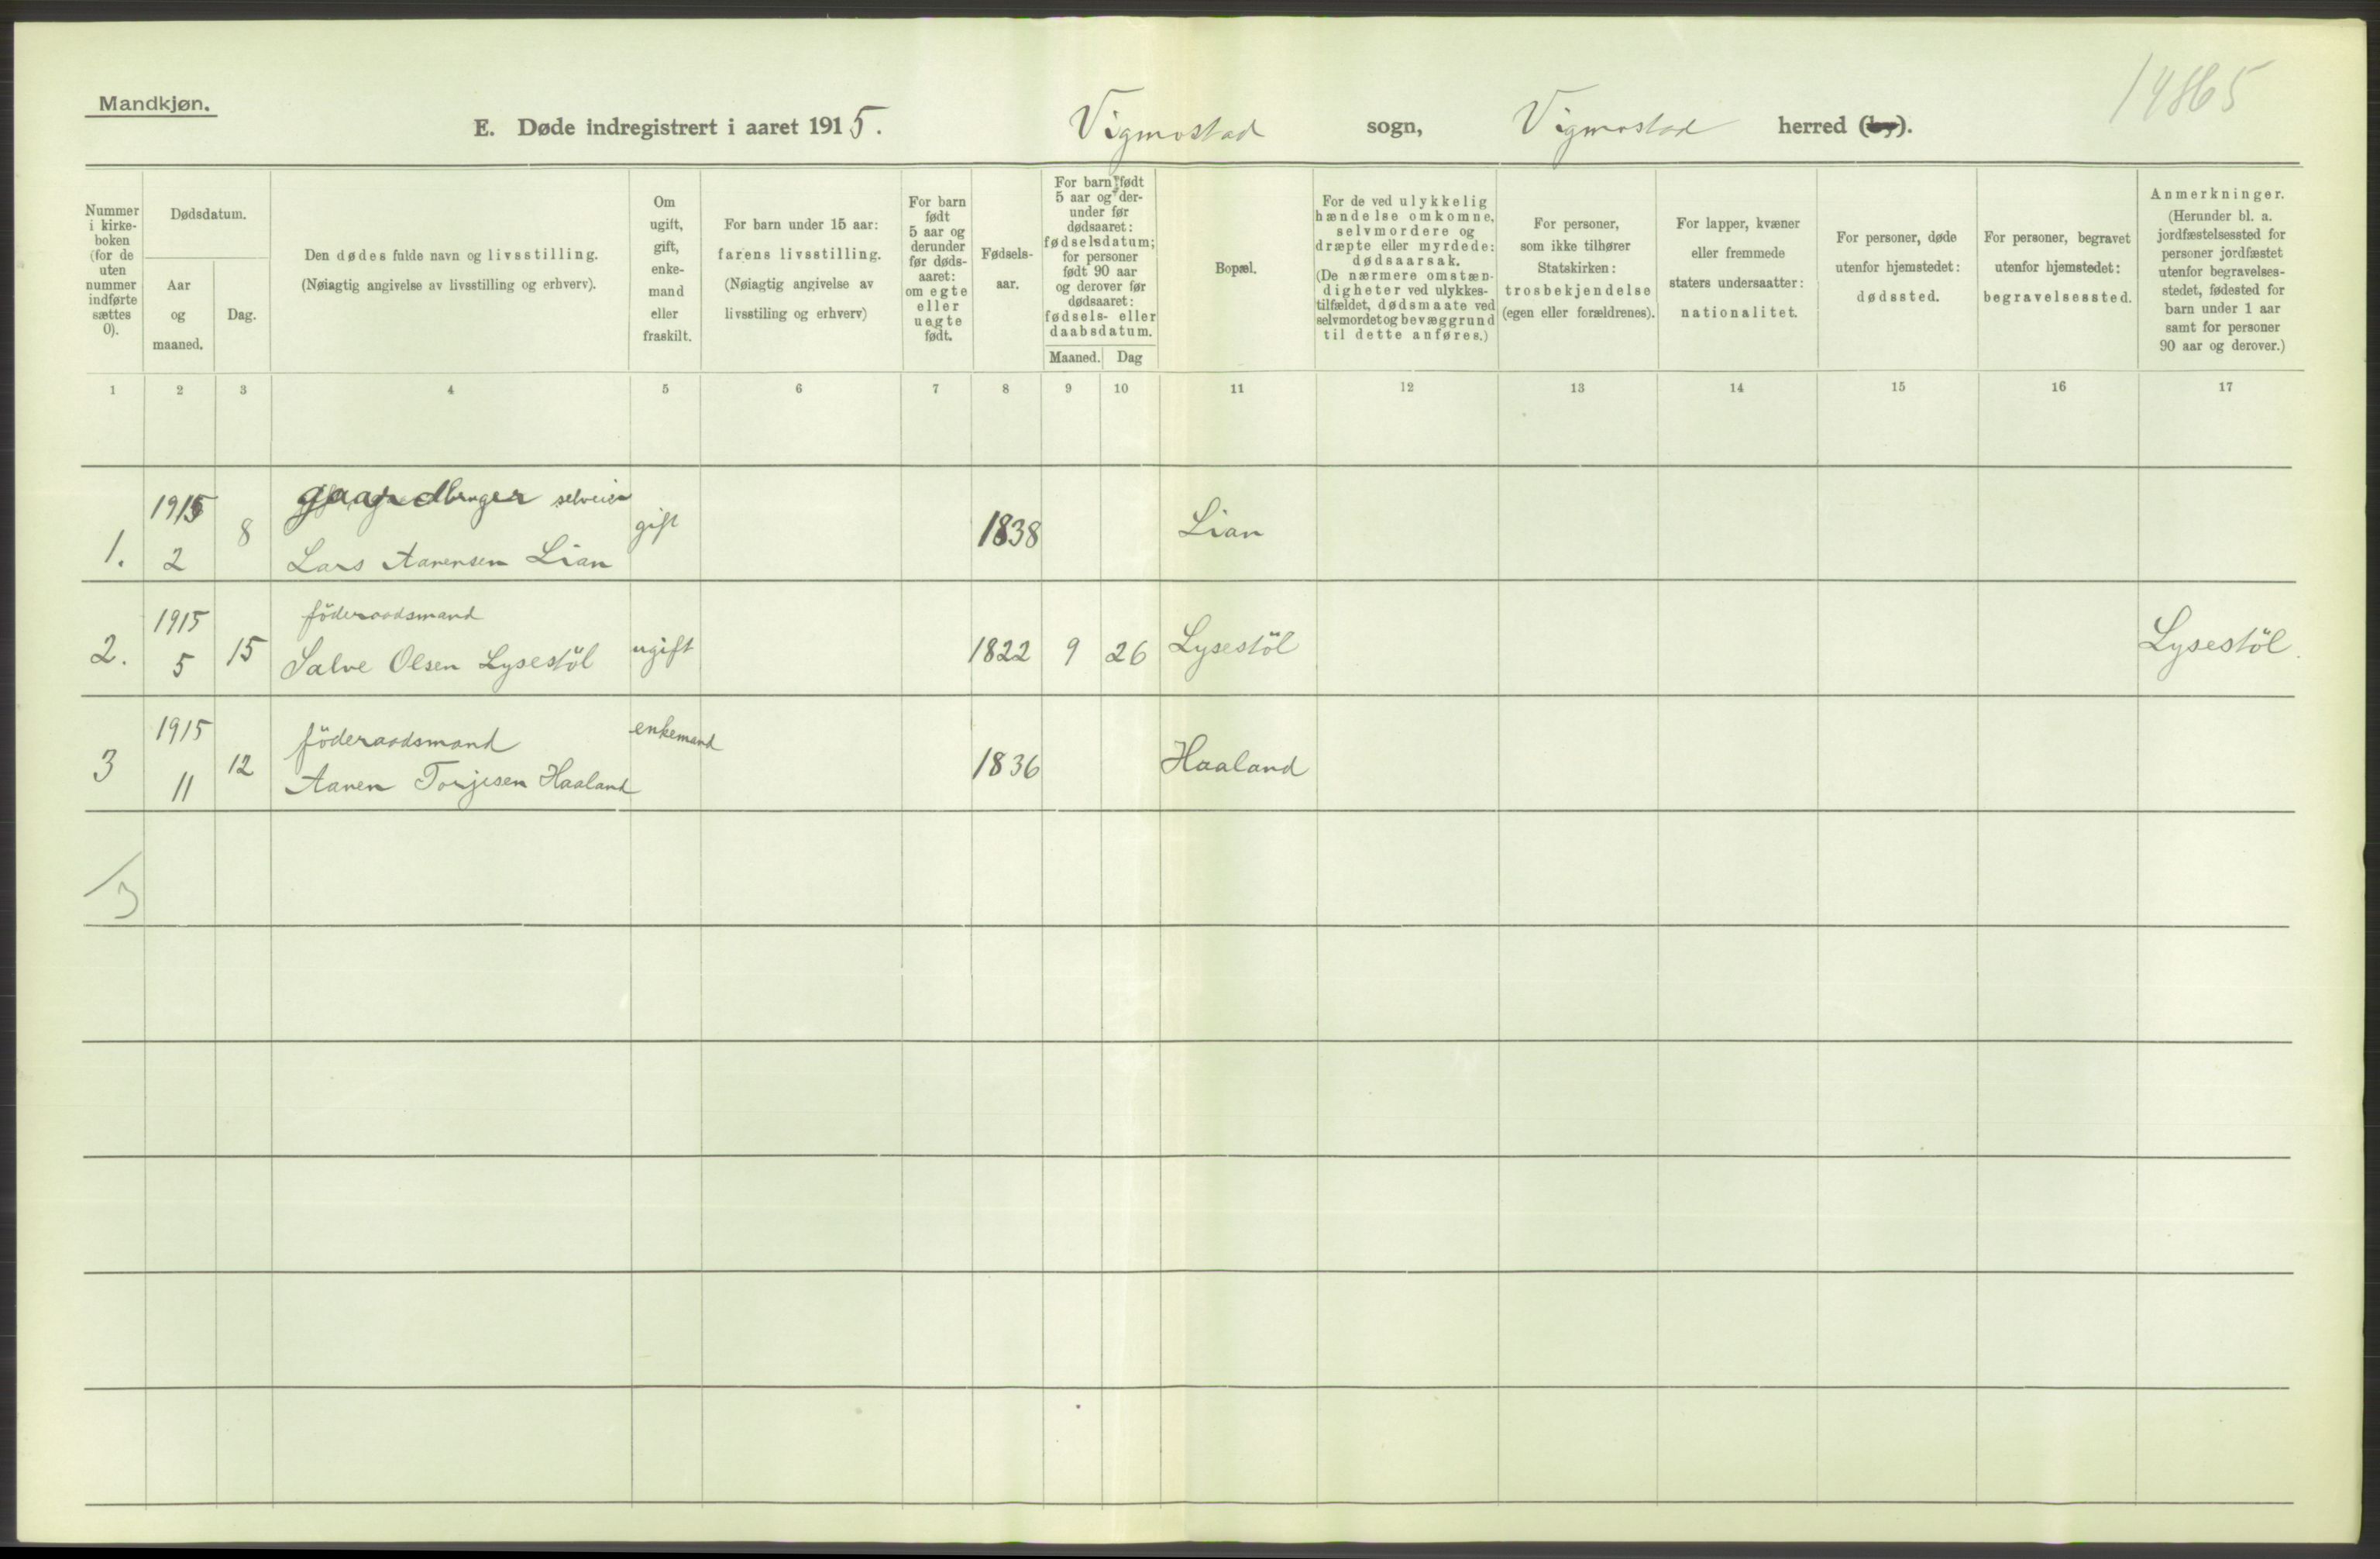 Mandkjøn.
14865
E. Døde indregistrert i aaret 1915. Vigmostad sogn, Vigmostad herred (by).
Nummer i kirke-boken (for de uten nummer indførte sættes 0).
Dødsdatum.
Aar og maaned.
Dag.
Den dødes fulde navn og livsstilling.
(Nøiagtig angivelse av livsstilling og erhverv).
Om ugift, gift, enke-mand eller fraskilt.
For barn under 15 aar: farens livsstilling.
(Nøiagtig angivelse av livsstiling og erhverv)
For barn født 5 aar og derunder før døds-aaret: om egte eller uegte født.
Fødsels-aar.
For barn født 5 aar og der-under før dødsaaret: fødselsdatum; for personer født 90 aar og derover før dødsaaret: fødsels- eller daabsdatum.
Maaned. Dag
Bopæl.
For de ved ulykkelig hændelse omkomne, selvmordere og dræpte eller myrdede: dødsaarsak.
(De nærmere omstæn-digheter ved ulykkes-tilfældet, dødsmaate ved selvmordet og bevæggrund til dette anføres.)
For personer, som ikke tilhører Statskirken: trosbekjendelse (egen eller forældrenes).
For lapper, kvæner eller fremmede staters undersaatter: nationalitet.
For personer, døde utenfor hjemstedet: dødssted.
For personer, begravet utenfor hjemstedet: begravelsessted.
Anmerkninger.
(Herunder bl. a. jordfæstelsessted for personer jordfæstet utenfor begravelses-stedet, fødested for barn under 1 aar samt for personer 90 aar og derover.)
1 2 3 4 5 6 7 8 9 10 11 12 13 14 15 16 17
1915 gaardbruger selveier
1. 2 8 Lars Aanensen Lian gift 1838 Lian
1915 föderaadsmand
2. 5 15 Salve Olsen Lysestöl ugift 1822 9 26 Lysestöl Lysestöl.
1915 föderaadsmand enkemand
3 11 12 Aanen Torjesen Haaland 1836 Haaland
/3